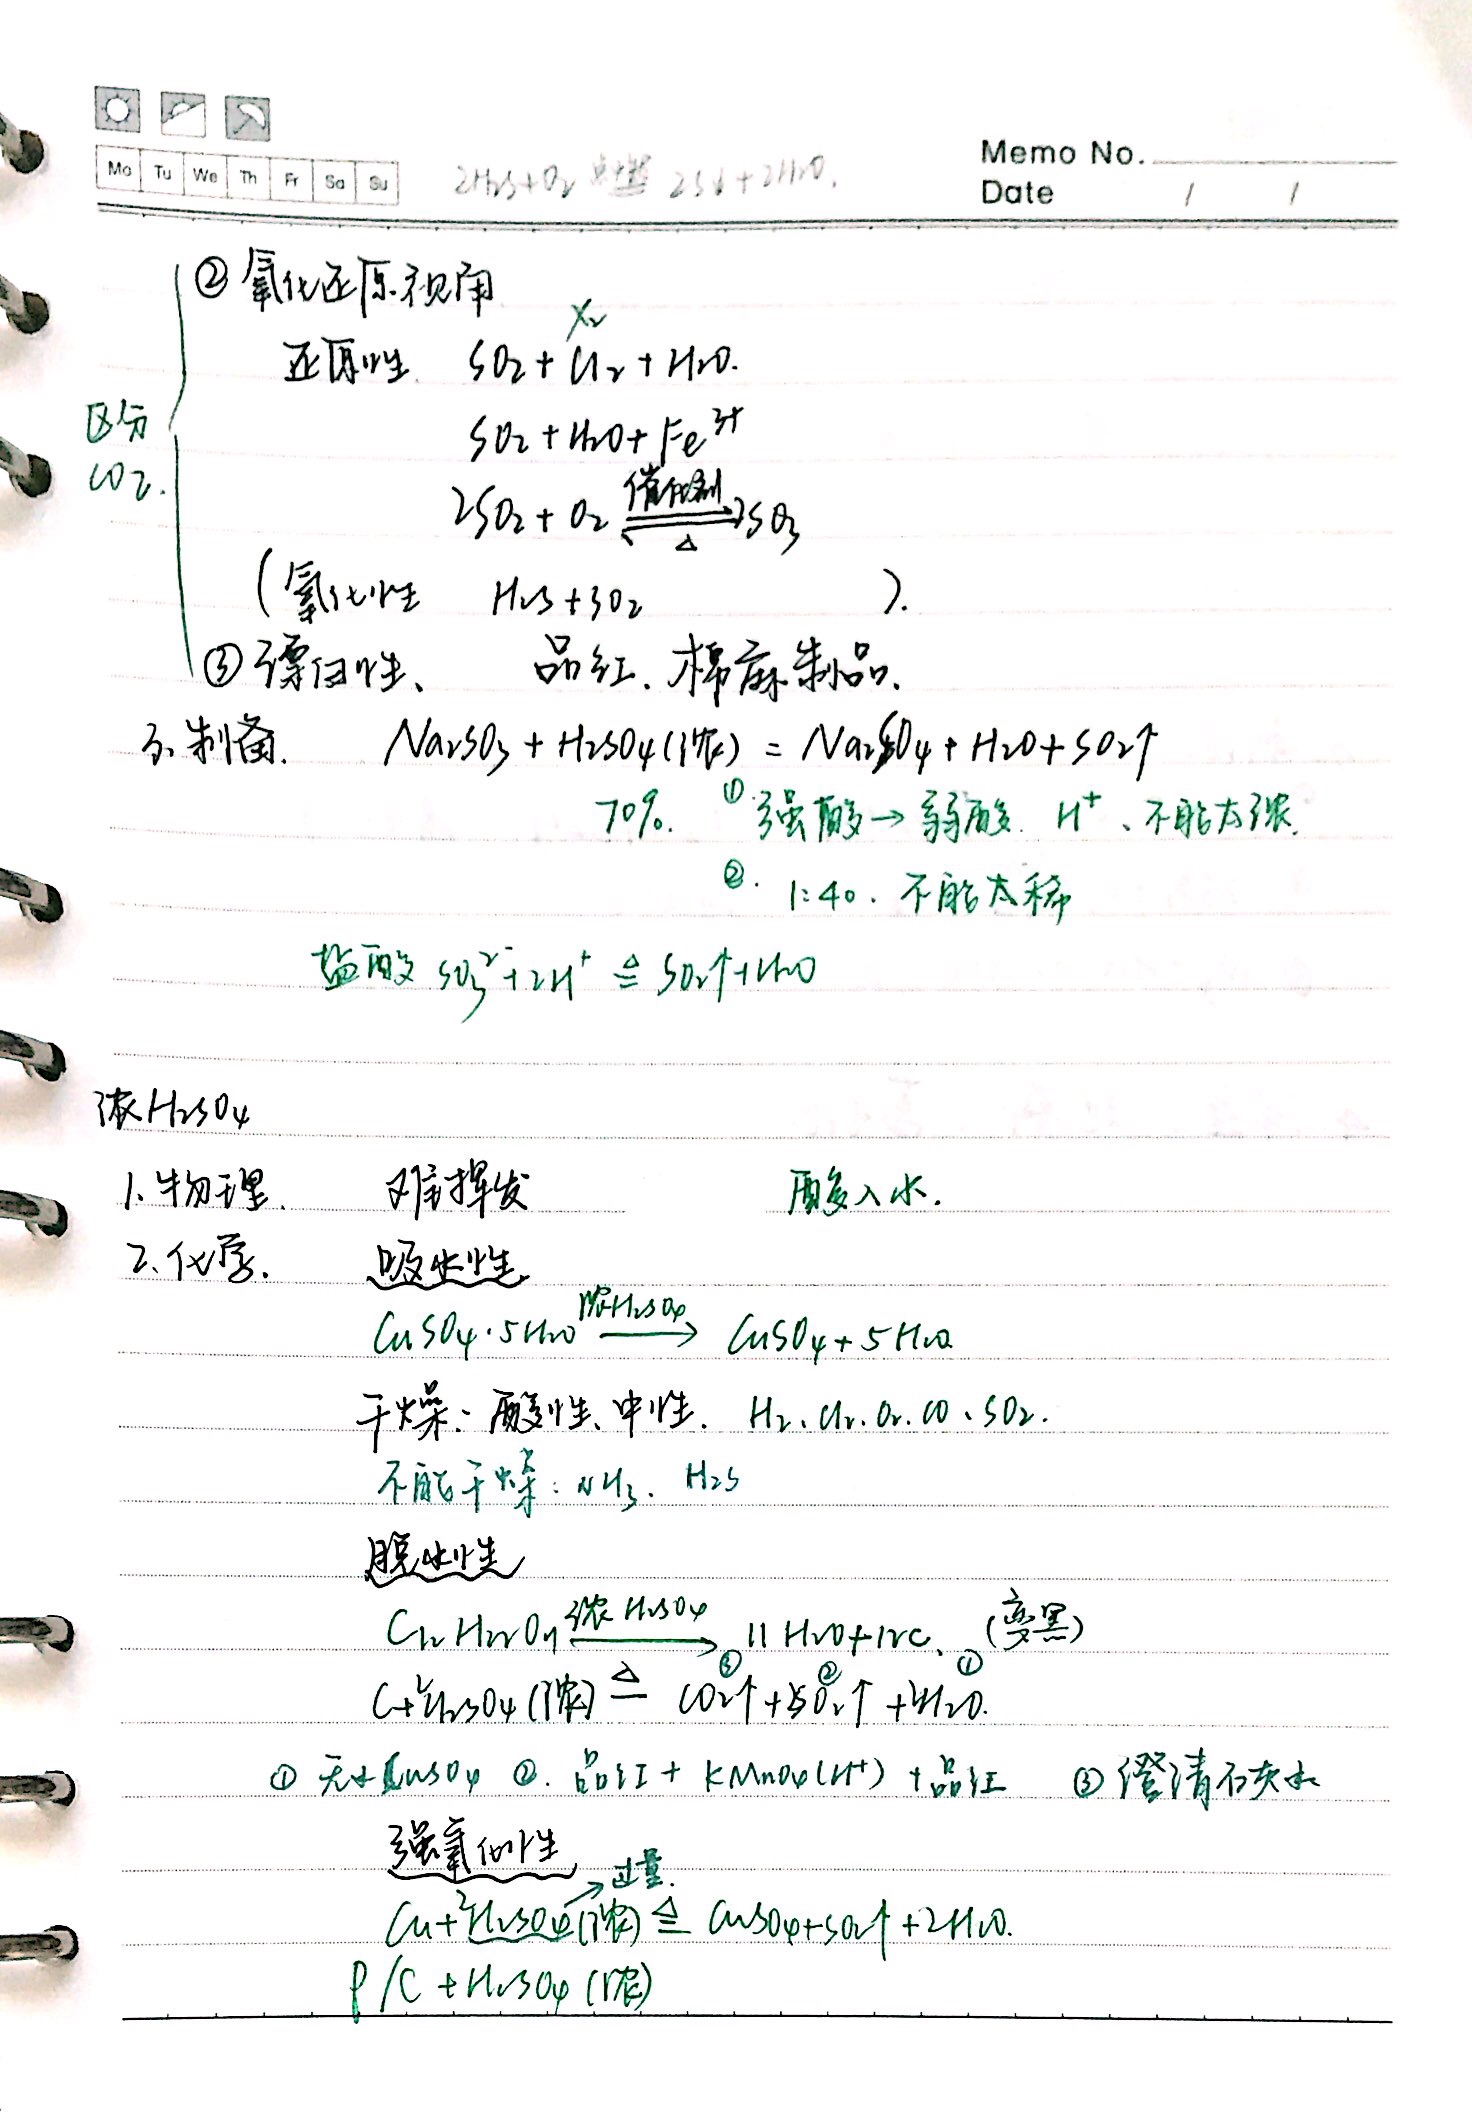 Mo Tu We Th Fr Sa Su
2H₂S+O₂ 点燃 2S↓+2H₂O.
Memo No.
Date / /
②氧化还原视角
X₂
还原性 SO₂+Cl₂+H₂O.
区分 CO₂.
SO₂+H₂O+Fe³⁺
2SO₂+O₂ ⇌(催化剂 △) 2SO₃
(氧化性 H₂S+SO₂ ).
③漂白性、 品红、棉麻制品.
3.制备. Na₂SO₃+H₂SO₄(浓)=Na₂SO₄+H₂O+SO₂↑
70%. ①强酸→弱酸 H⁺、不能太浓.
②. 1:40. 不能太稀
盐酸 SO₃²⁻+2H⁺ ≜ SO₂↑+H₂O
浓H₂SO₄
1.物理. 难挥发 酸入水.
2.化学. 吸水性
CuSO₄·5H₂O —浓H₂SO₄→ CuSO₄+5H₂O
干燥:酸性、中性. H₂、Cl₂、O₂、CO、SO₂.
不能干燥:NH₃. H₂S
脱水性
C₁₂H₂₂O₁₁ —浓H₂SO₄→ 11H₂O+12C、(变黑)
③ ② ①
C+2H₂SO₄(浓) ≜ CO₂↑+2SO₂↑+2H₂O.
①无水CuSO₄ ②.品红+KMnO₄(H⁺)+品红 ③澄清石灰水
强氧化性
→过量.
Cu+2H₂SO₄(浓) ≜ CuSO₄+SO₂↑+2H₂O.
P/C+H₂SO₄(浓)